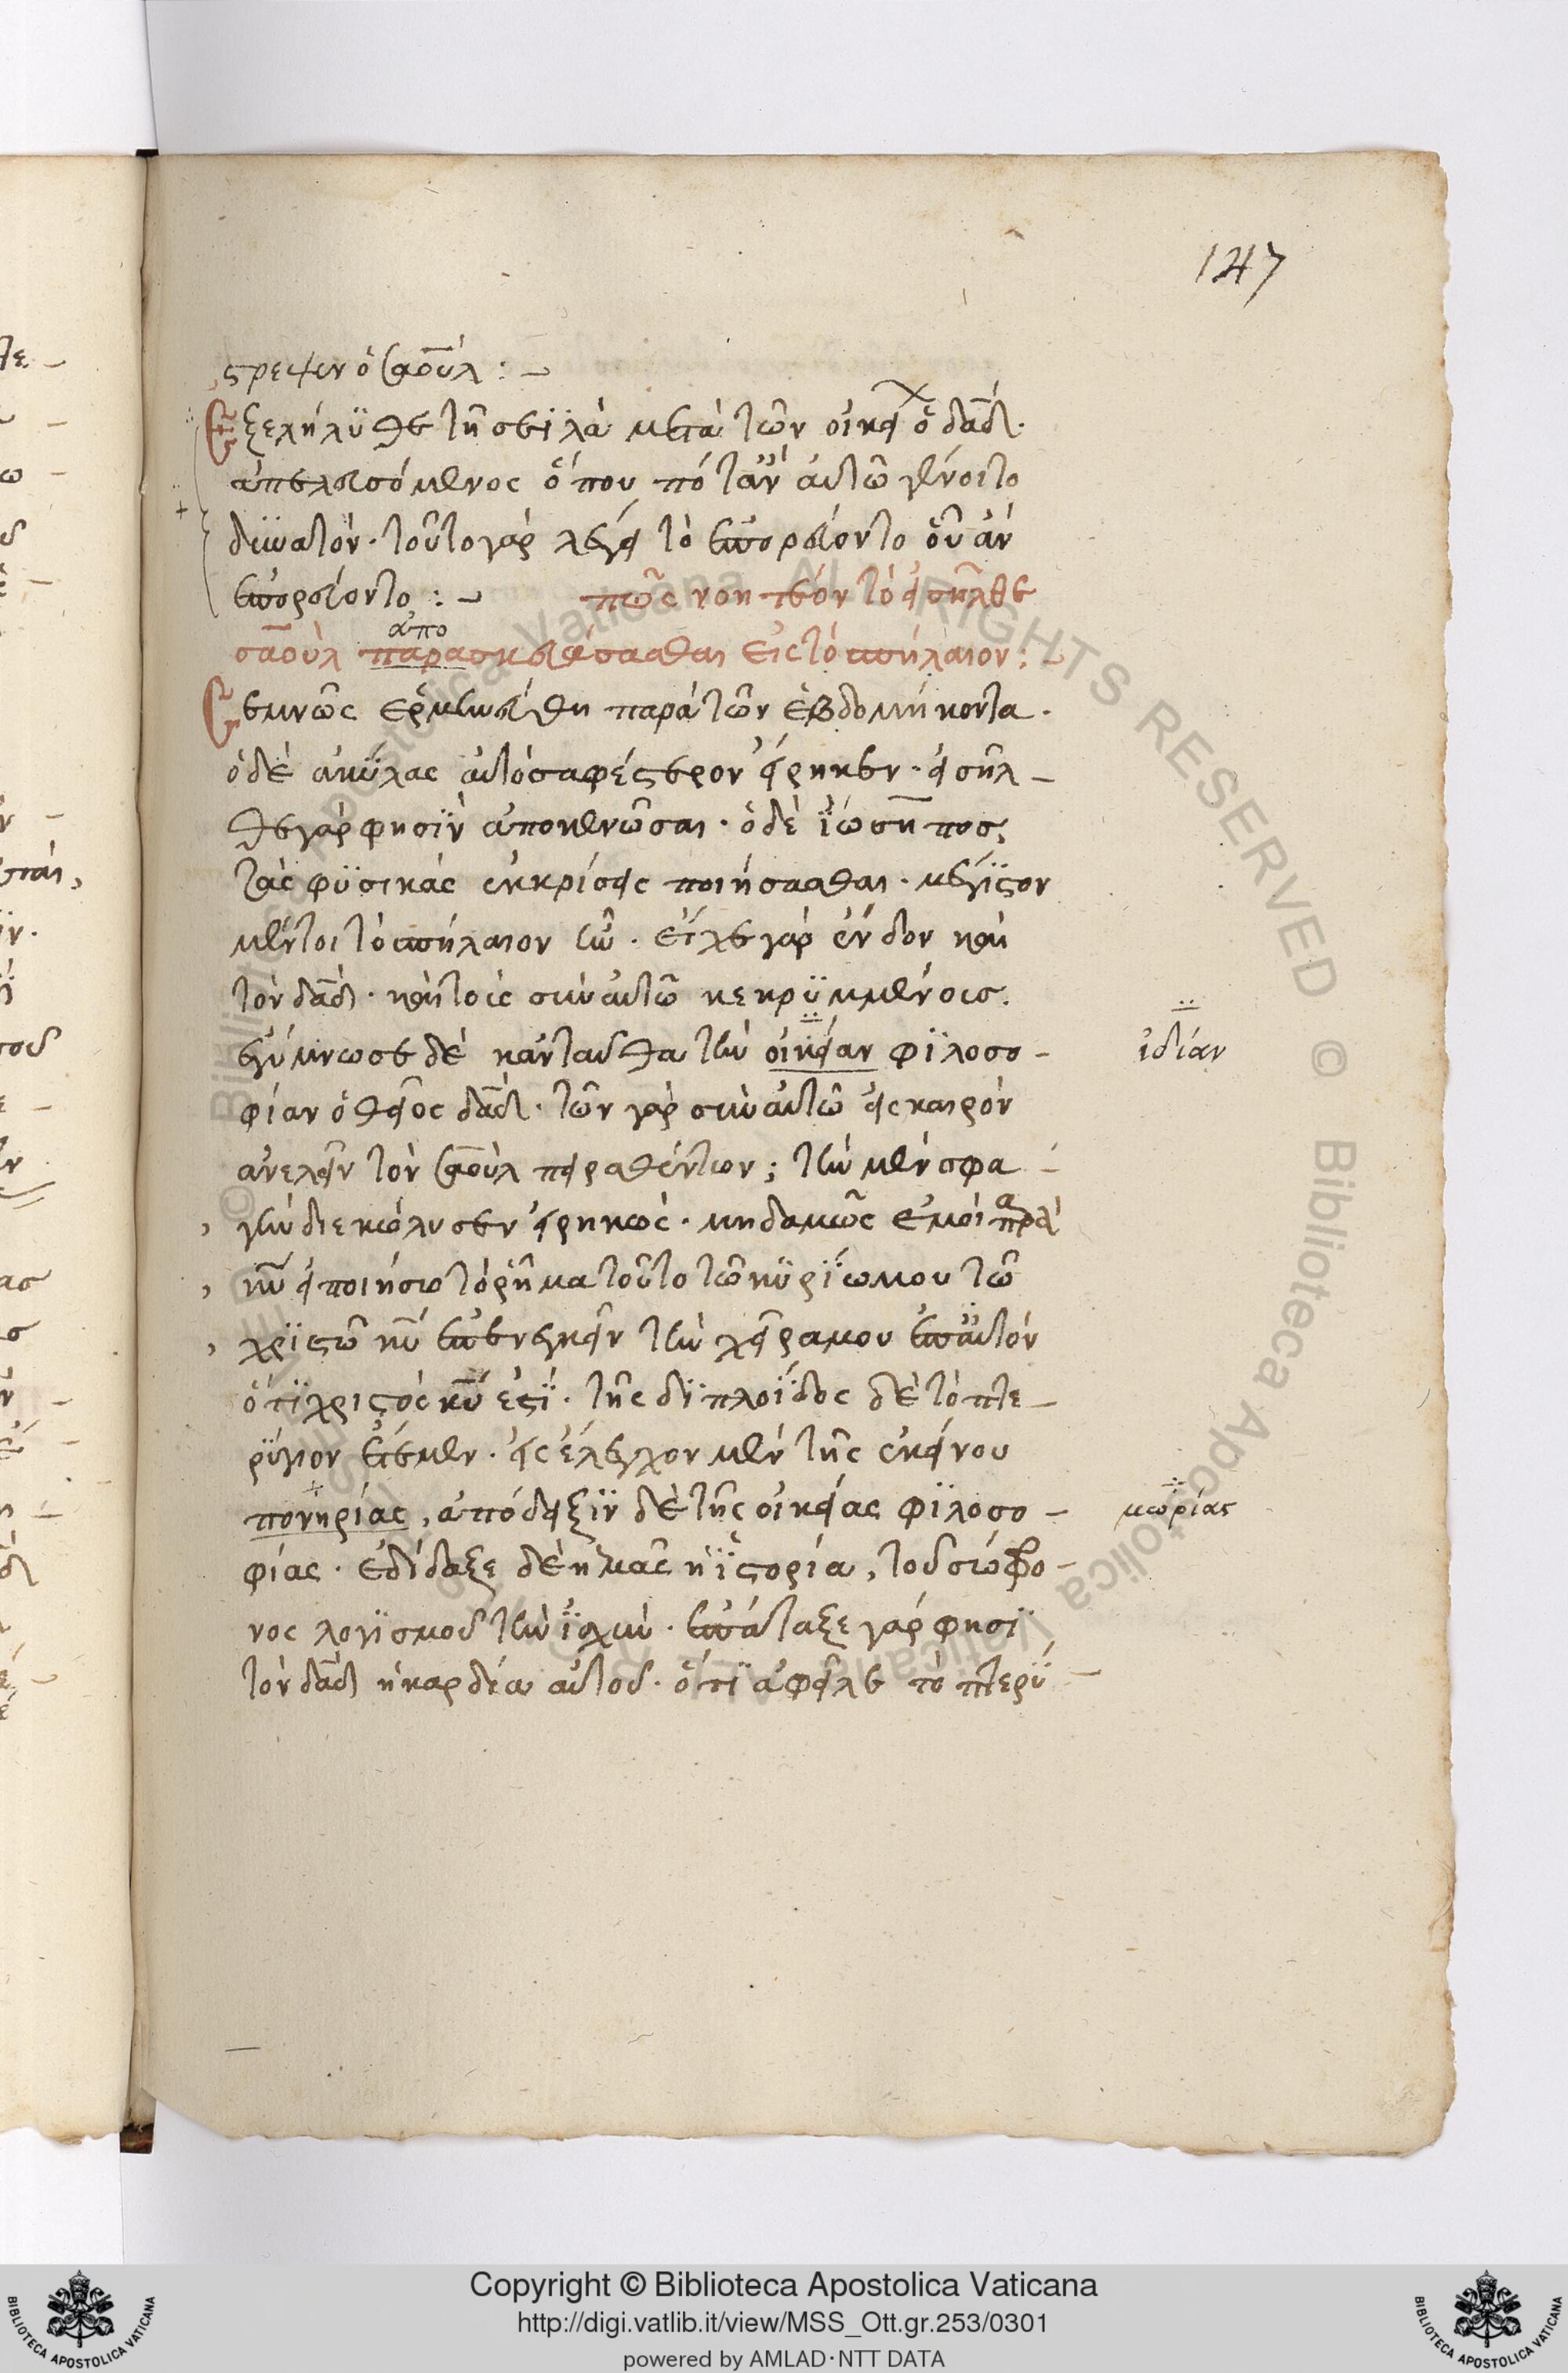 147
στρεψεν ὁ σαούλ : ~
Ἐξεληλϋθε τῆ σεϊλὰ μετὰ τῶν οἰκεί ὁ δαδ.
ἀπελευσόμενος ὅπου πότ' ἂν αὐτῶ γένοιτο
δϋνατόν. τοῦτο γὰρ λέγει τὸ ἐπορεύοντο οὗ ἂν
ἐπορεύοντο : ~ πῶς νοητέον τὸ εἰσῆλθε
ἀπο
σαοὺλ παρασκευάσασθαι εἰς τὸ σπήλαιον : ~
Σεμνῶς ἑρμηνεύθη παρὰ τῶν ἑβδομήκοντα.
ὁ δὲ ἀκύλας αὐτὸ σαφέστερον εἴρηκεν. εἰσῆλ-
θε γάρ φησϊν ἀποκενῶσαι. ὁ δὲ ἰώσηπος,
τὰς φϋσικὰς ἐκκρίσεις ποιήσασθαι. μέγϊστον
μέντοι τὸ σπήλαιον ἦν. εἶχε γὰρ ἔνδον καὶ
τὸν δαδ. καὶ τοῖς σὺν αὐτῶ κεκρϋμμένοις.
ἐγύμνωσε δὲ κἀνταῦθα τὴν οἰκείαν φϊλοσο-
ἰδίαν
φίαν ὁ θεῖος δαδ. τῶν γὰρ σὺν αὐτῶ εἰς καιρὸν
ἀνελεῖν τὸν σαοὺλ πειραθέντων; τὴν μὲν σφα-
γὴν διεκώλυσεν εἰρηκώς. μηδαμῶς ἐμοὶ παρὰ
κυ εἰ ποιήσω τὸ ῥῆμα τοῦτο τῶ κϋρίω μου τῶ
χρϊστῶ κυ ἐπενεγκεῖν τὴν χεῖρα μου ἐπ' αὐτὸν
ὅτϊ χριστὸς κυ ἐστϊ. τῆς δϊπλοΐδος δὲ τὸ πτε-
ρύγιον ἔτεμεν. εἰς ἔλεγχον μὲν τῆς ἐκείνου
πονηρίας, ἀπόδειξϊν δὲ τῆς οἰκείας φϊλοσο-
μωρίας
φίας. ἐδίδαξε δὲ ἡμᾶς ἡ ἱστορία, τοῦ σώφρο-
νος λογϊσμοῦ τὴν ἰσχύν. ἐπάταξε γάρ φησϊ
τὸν δαδ ἡ καρδία αὐτοῦ. ὅτϊ ἀφεῖλε τὸ πτερύ-
Copyright © Biblioteca Apostolica Vaticana
http://digi.vatlib.it/view/MSS_Ott.gr.253/0301
powered by AMLAD·NTT DATA